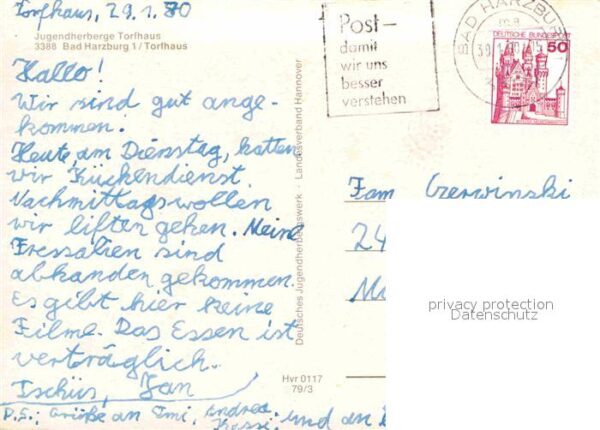 Torfhaus, 29.1.80
Jugendherberge Torfhaus
3388 Bad Harzburg 1 / Torfhaus
Hallo!
Wir sind gut ange-
kommen.
Heute, am Dienstag, hatten
wir Küchendienst.
Nachmittags wollen
wir liften gehen. Meine
Fressalien sind
abhanden gekommen.
Es gibt hier keine
Filme. Das Essen ist
verträglich.
Tschüs, Jan
P.S.: Grüße an Omi, Andrea,
und an
Hvr 0117
79/3
Deutsches Jugendherbergswerk · Landesverband Hannover
Post–
damit
wir uns
besser
verstehen
BAD HARZBU
DEUTSCHE BUNDESPOST
50
Fam. Czerwinski
24
privacy protection
Datenschutz